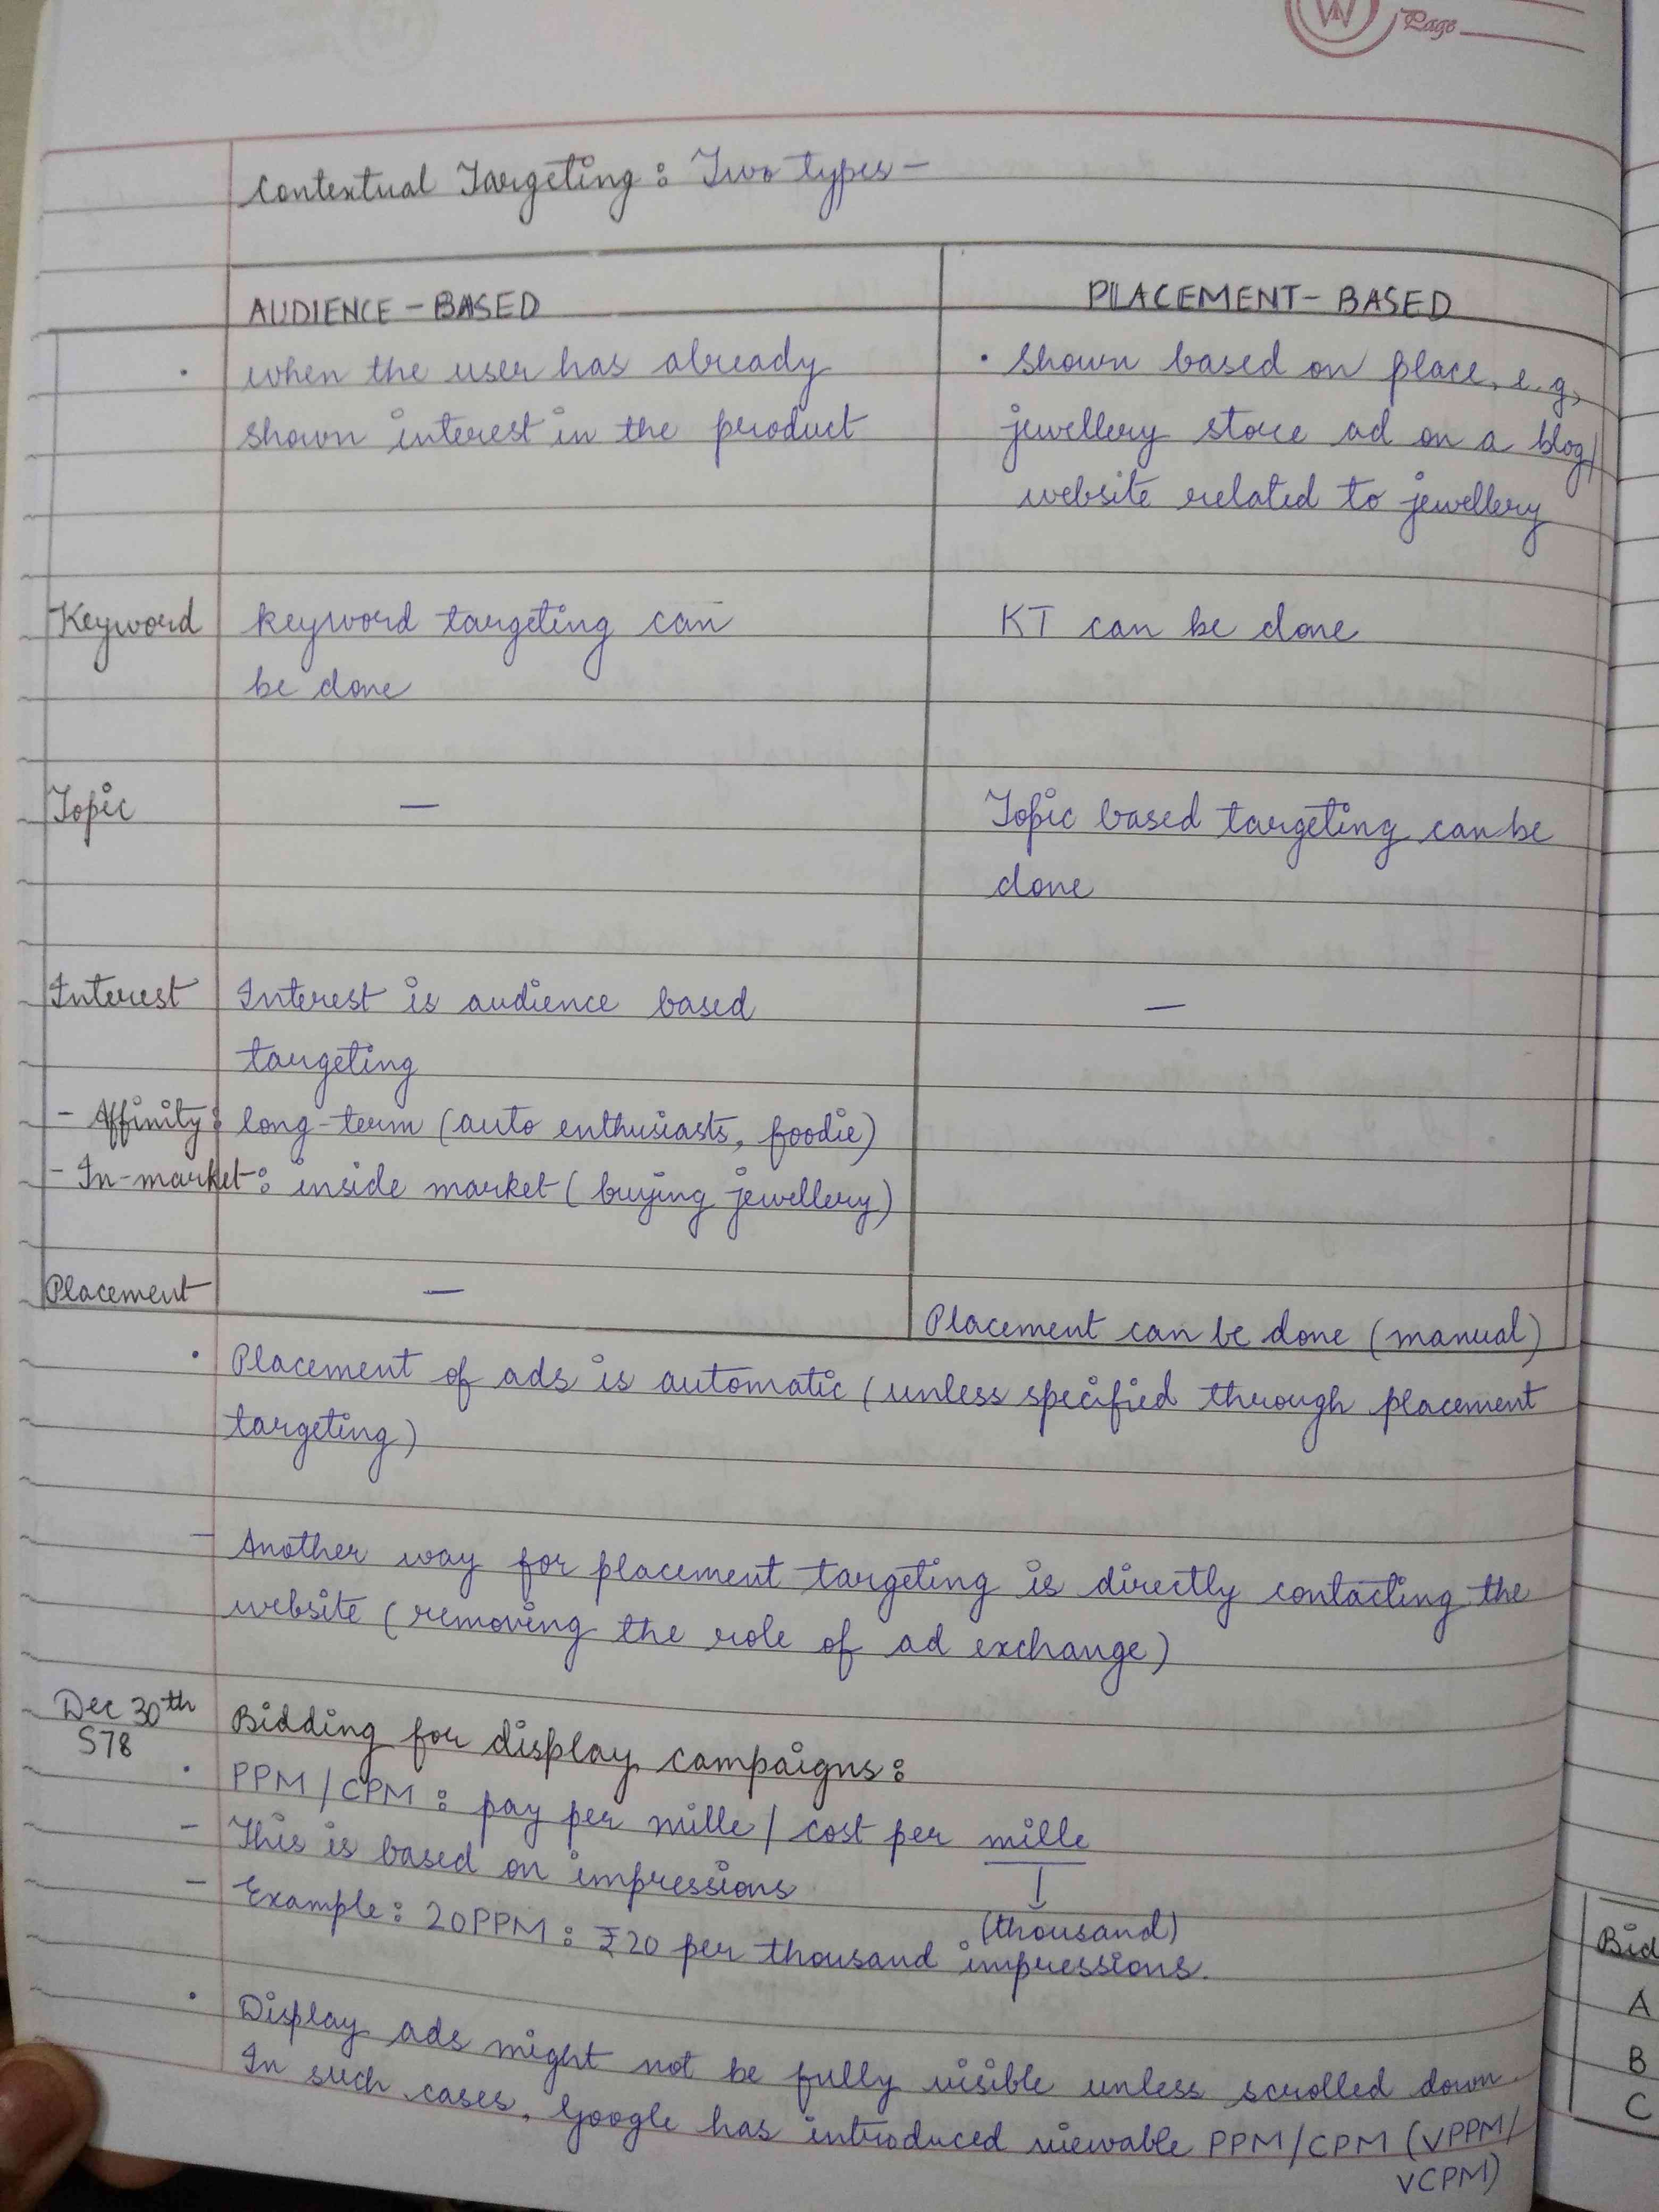 Page
Contextual Targeting: Two types –
AUDIENCE – BASED
PLACEMENT – BASED
• when the user has already
shown interest in the product
• shown based on place, e.g,
jewellery store ad on a blog/
website related to jewellery
Keyword
keyword targeting can
be done
KT can be done
Topic
—
Topic based targeting can be
done
Interest
Interest is audience based
targeting
—
- Affinity: long-term (auto enthusiasts, foodie)
- In-market: inside market (buying jewellery)
Placement
—
Placement can be done (manual)
• Placement of ads is automatic (unless specified through placement
targeting)
– Another way for placement targeting is directly contacting the
website (removing the role of ad exchange)
Dec 30th
S78
Bidding for display campaigns:
• PPM/CPM: pay per mille / cost per mille
– This is based on impressions
(thousand)
– Example: 20PPM: ₹20 per thousand impressions.
• Display ads might not be fully visible unless scrolled down.
In such cases, Google has introduced viewable PPM/CPM (VPPM/
VCPM)
Bid
A
B
C